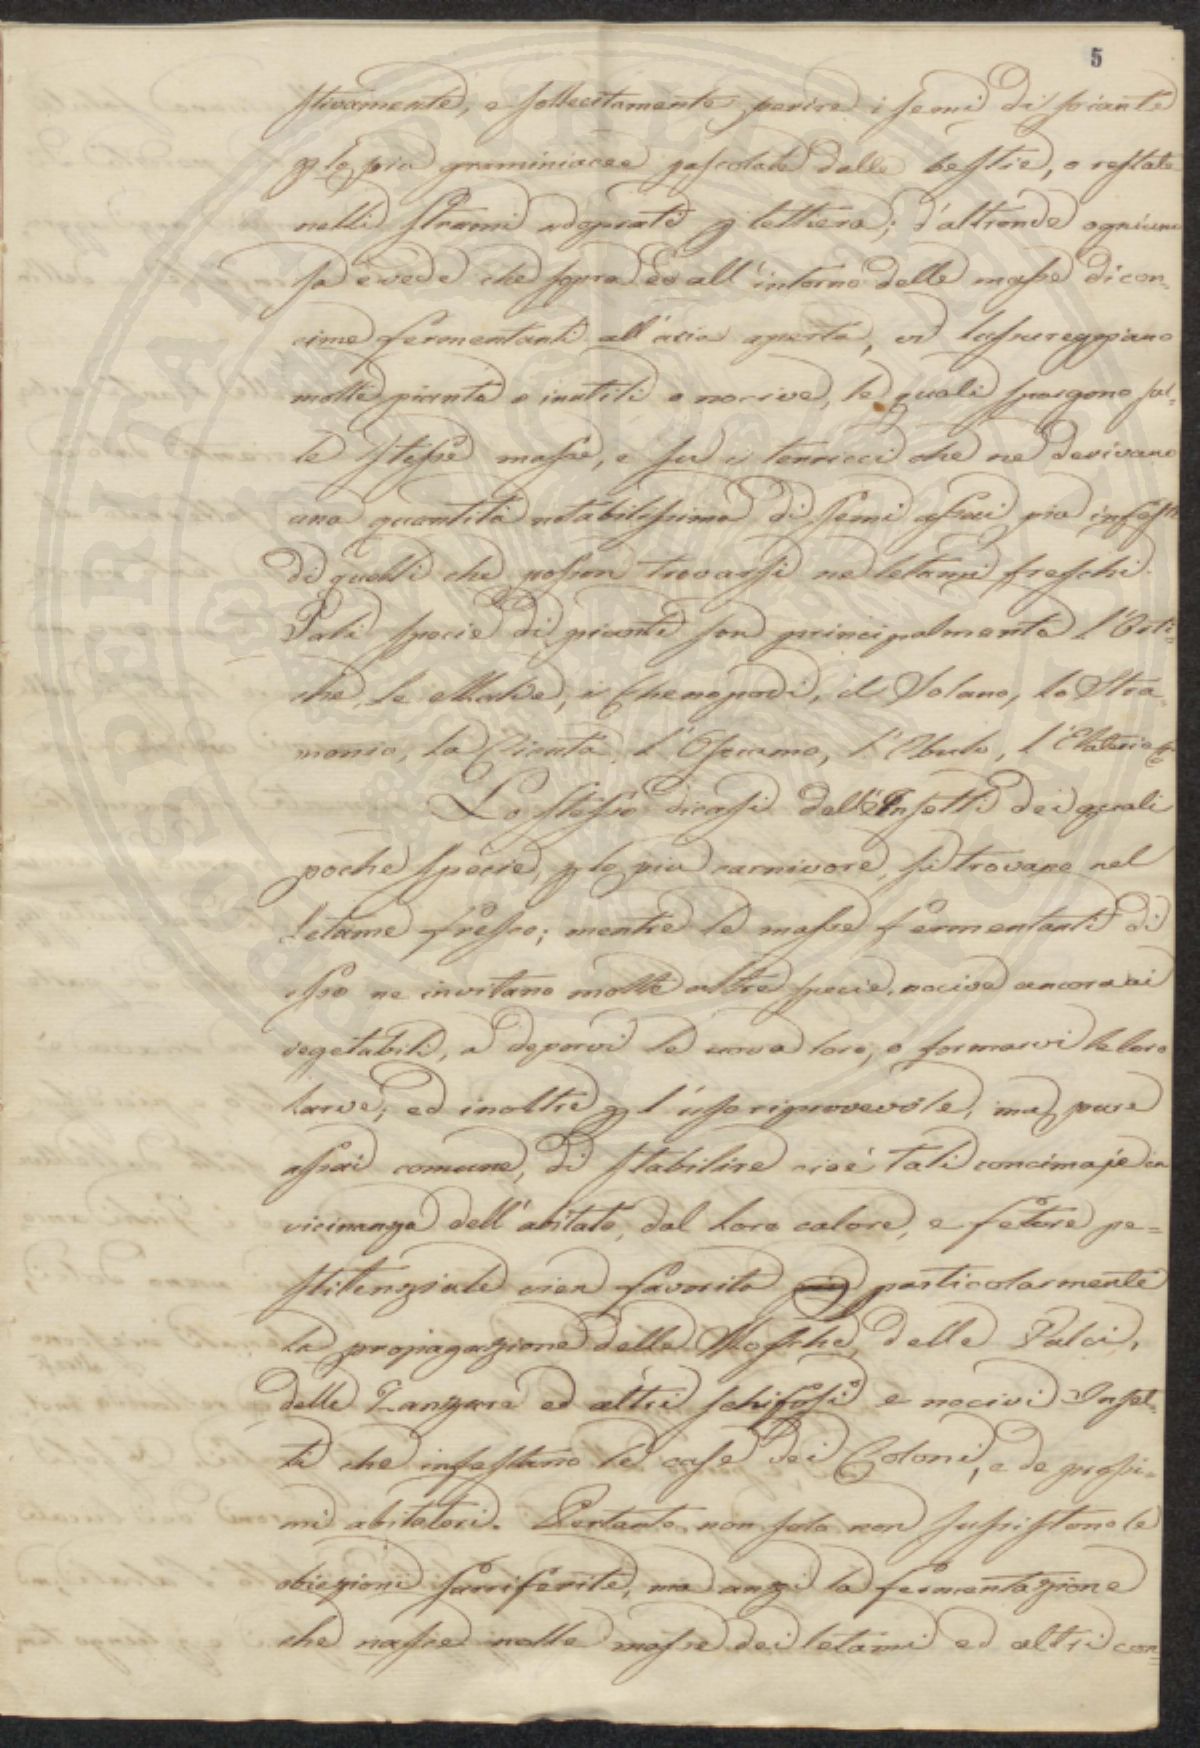 5
stivamente, e sollecitamente perire i semi di piante
p lo più graminiacee pascolate dalle bestie, o restate
nelli strami adoprati p lettiera; d'altronde ogniuno
sa e vede che sopra ed all'intorno delle masse di con=
cime fermentanti all'aria aperta, vi lussureggiano
molte piante o inutili o nocive, le quali spargono sul=
le stesse masse, e su i terricci che ne derivano
una quantità notabilissima di semi assai più infesti
di quelli che posson trovarsi ne letami freschi.
Tali specie di piante son principalmente l'Orti=
che, le Malve, i Chenopodi, il Solano, lo Stra=
monio, la Cicuta, l'Osciamo, l'Ebulo, l'Elaterio &
Lo stesso dicasi dell'Insetti dei quali
poche specie, p lo più carnivore, si trovano nel
Letame fresco; mentre le masse fermentanti di
esso ne invitano molte altre specie, nocive ancora ai
vegetabili, a deporvi le uova loro, o formarvi le loro
larve; ed inoltre p l'uso riprovevole, ma pure
assai comune, di stabilire cioè tali concimaje in
vicinanza dell'abitato, dal loro calore, e fetore pe=
stilenziale vien favorita più particolarmente
la propagazione delle Mosche, delle Pulci,
delle Zanzare ed altri schifosi e nocivi Inset=
ti che infestano le case dei Coloni, e de prossi=
mi abitatori. Pertanto non solo non sussistono le
obiezioni surriferite, ma anzi la fermentazione
che nasce nelle masse dei letami ed altri con=